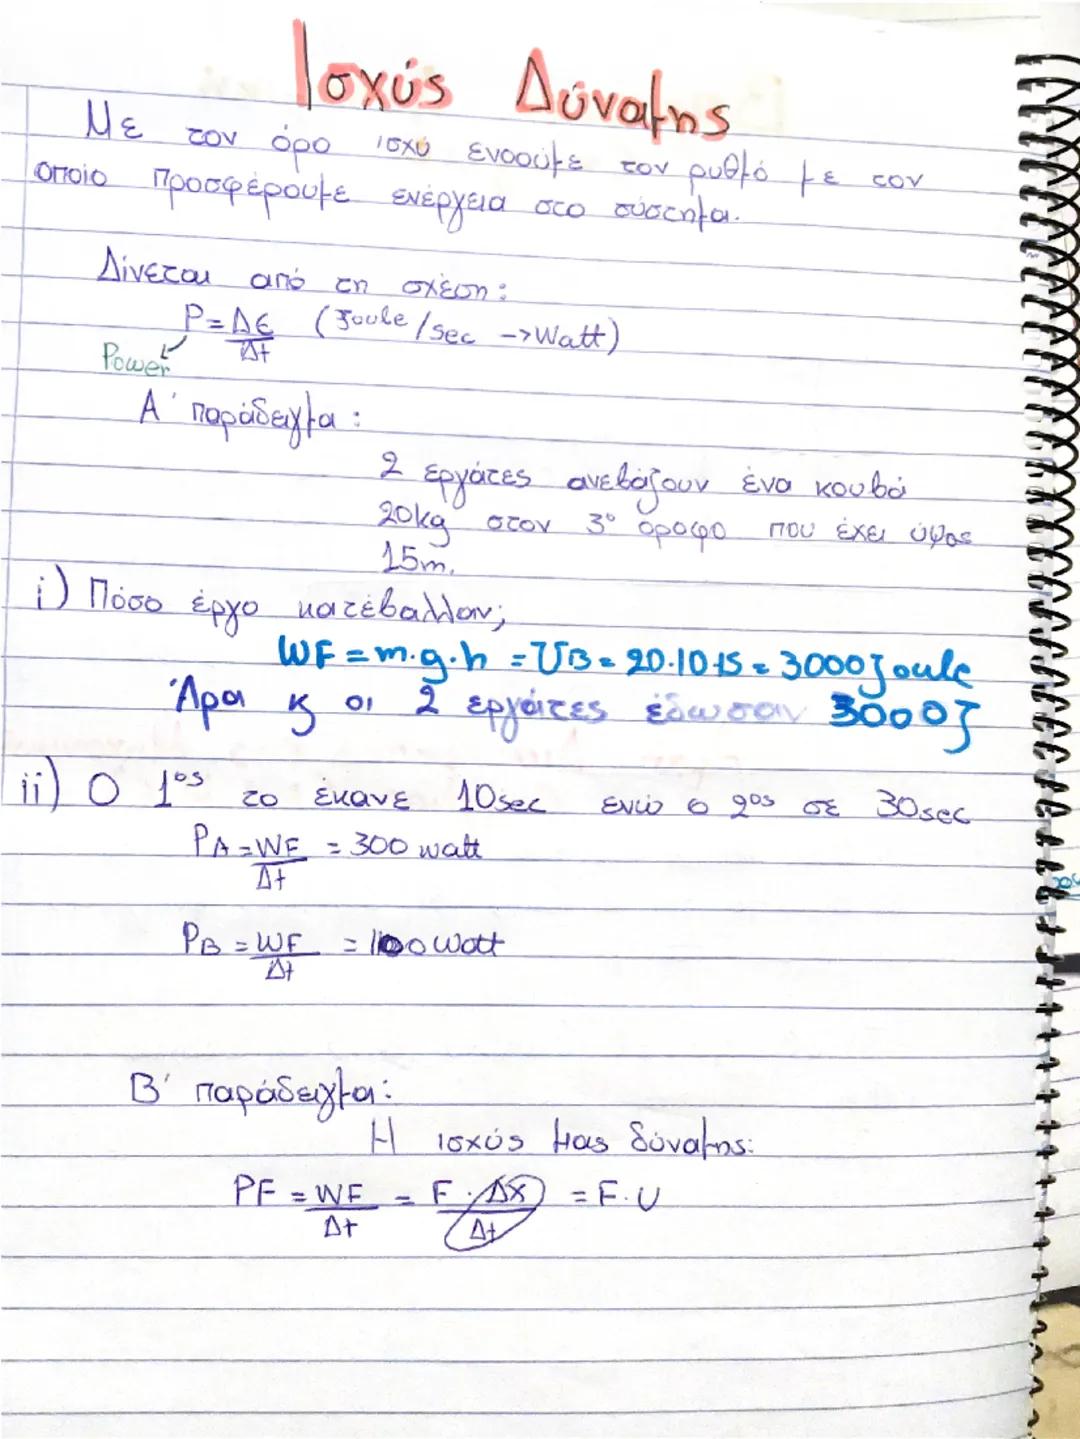 Ισχύς Δύναμης
Με τον όρο ισχύ εννοούμε τον ρυθμό με τον
οποίο προσφέρουμε ενέργεια στο σύστημα.
Δίνεται από τη σχέση:
P = Δε/Δt (Joule/sec -> Watt)
Power
Α' παράδειγμα:
2 εργάτες ανεβάζουν ένα κουβά
20kg στον 3° όροφο που έχει ύψος
15m.
i) Πόσο έργο κατέβαλλαν;
WF = m.g.h = UB = 20.10.15 = 3000 Joule
Άρα κ οι 2 εργάτες έδωσαν 3000J
ii) Ο 1ος το έκανε 10sec ενώ ο 2ος σε 30sec
PA = WF/Δt = 300 watt
PB = WF/Δt = 100 watt
Β' παράδειγμα:
Η ισχύς μιας δύναμης:
PF = WF/Δt = F.Δx/Δt = F.U